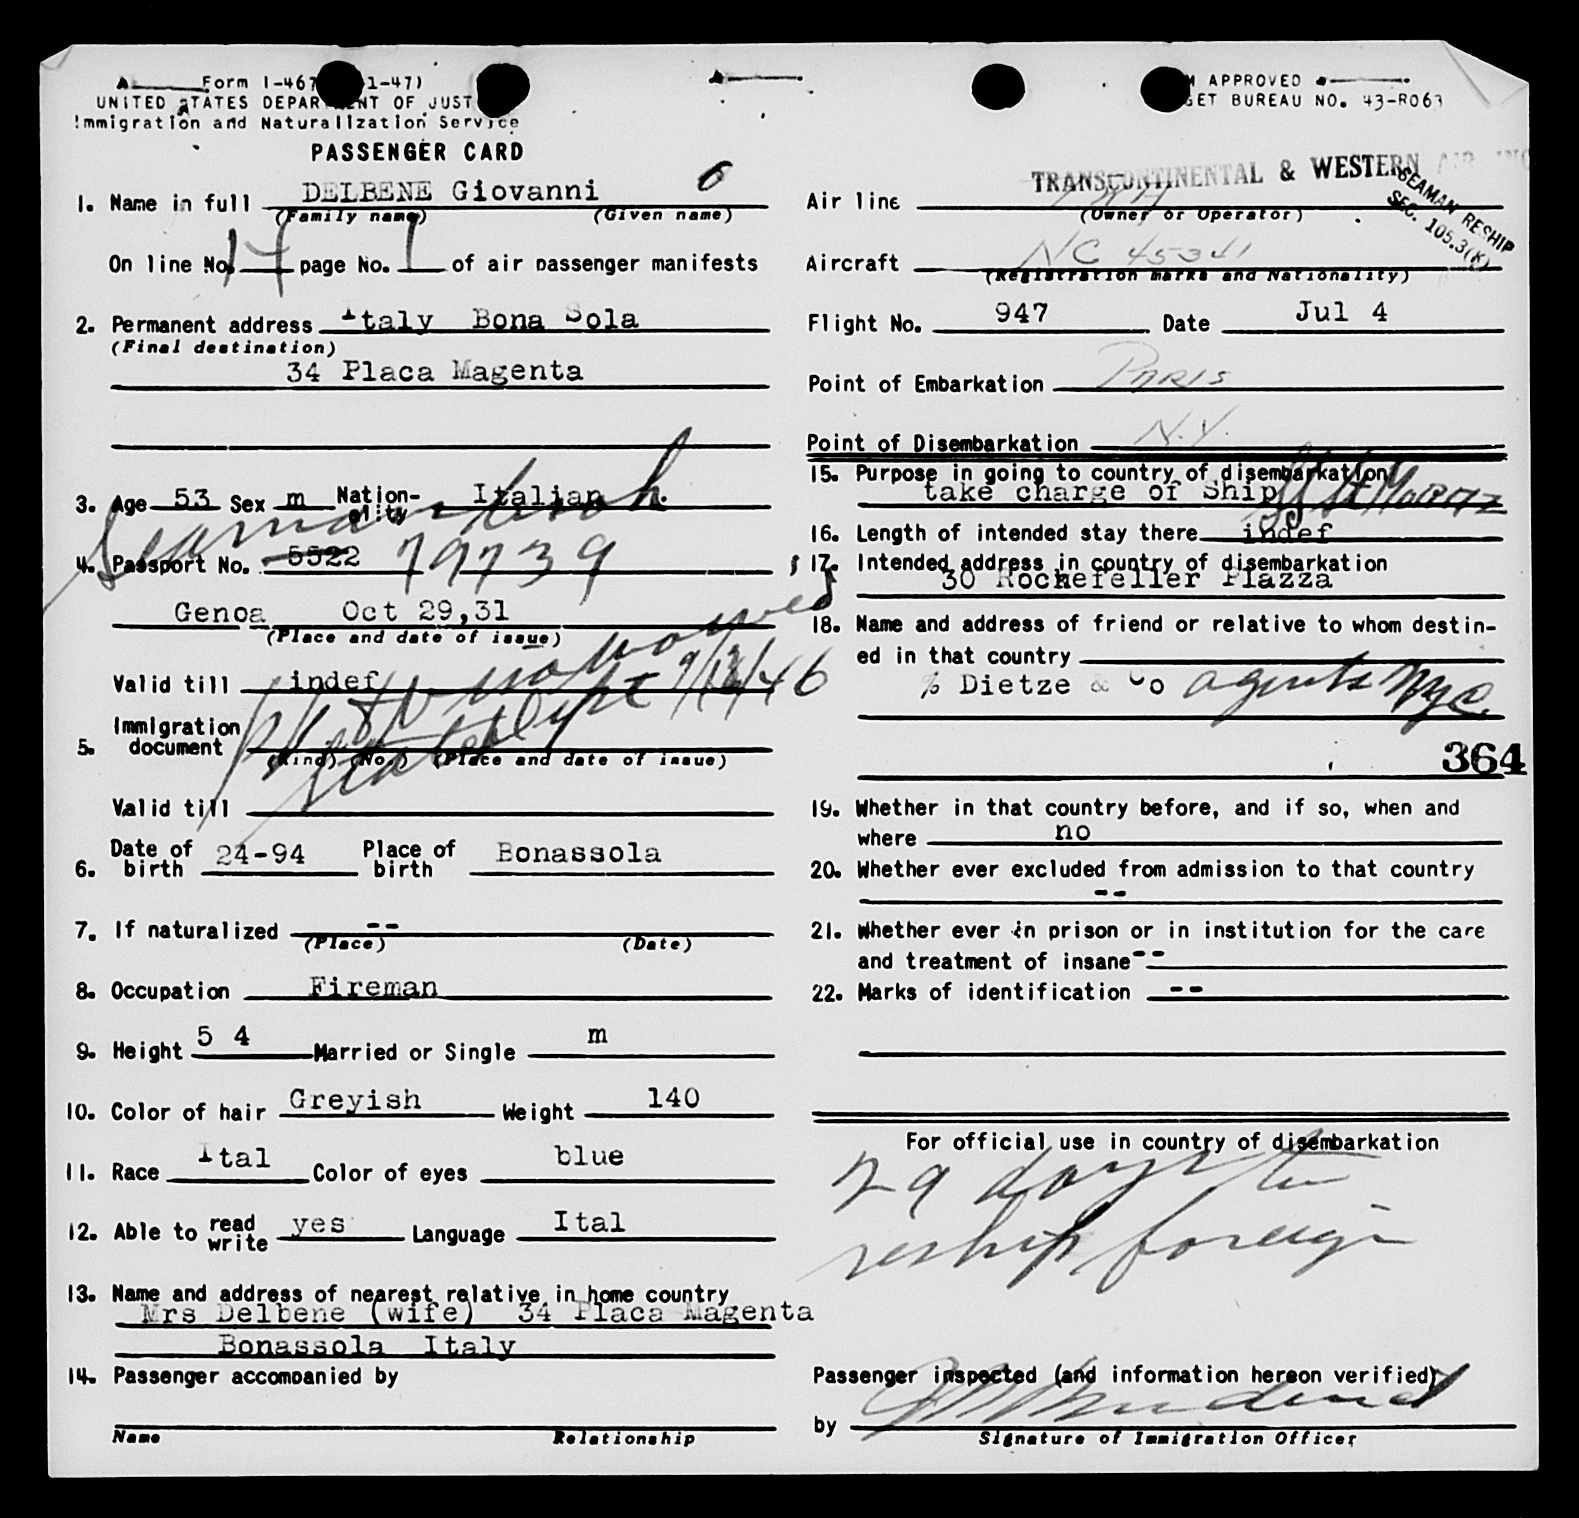 Form I-467 1-47)
UNITED STATES DEPARTMENT OF JUST
Immigration and Naturalization Service
PASSENGER CARD
1. Name in full DELBENE Giovanni
(Family name) (Given name)
On line No. 14 page No. 1 of air passenger manifests
2. Permanent address Italy Bona Sola
(Final destination)
34 Placa Magenta
3. Age 53 Sex m Nation-ality Italian
Seaman
4. Passport No. 5522 79739
Genoa Oct 29,31
(Place and date of issue)
Valid till indef
9/13/46
5. Immigration document
(Kind) (No.) (Place and date of issue)
State Dept
Valid till
6. Date of birth 24-94 Place of birth Bonassola
7. If naturalized --
(Place) (Date)
8. Occupation Fireman
9. Height 5 4 Married or Single m
10. Color of hair Greyish Weight 140
11. Race Ital Color of eyes blue
12. Able to read write yes Language Ital
13. Name and address of nearest relative in home country
Mrs Delbene (wife) 34 Placa Magenta
Bonassola Italy
14. Passenger accompanied by
Name Relationship
M APPROVED
GET BUREAU NO. 43-R063
TRANSCONTINENTAL & WESTERN AIR INC
Air line
(Owner or Operator)
SEAMAN RESHIP
SEC. 105.3(K)
Aircraft NC 45341
(Registration marks and Nationality)
Flight No. 947 Date Jul 4
Point of Embarkation PARIS
Point of Disembarkation N.Y.
15. Purpose in going to country of disembarkation
take charge of Ship
16. Length of intended stay there indef
17. Intended address in country of disembarkation
30 Rockefeller Plazza
18. Name and address of friend or relative to whom destin-
ed in that country
% Dietze & Co agents NYC.
364
19. Whether in that country before, and if so, when and
where no
20. Whether ever excluded from admission to that country
--
21. Whether ever in prison or in institution for the care
and treatment of insane --
22. Marks of identification --
For official use in country of disembarkation
29 days to
reship foreign
Passenger inspected (and information hereon verified)
by
Signature of Immigration Officer